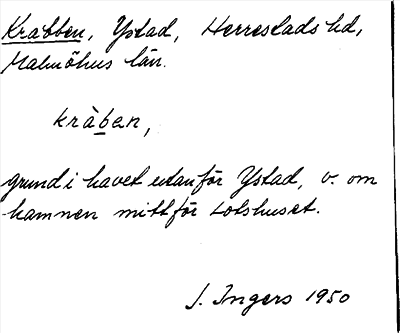 Krabben, Ystad, Herrestads hd,
Malmöhus län.
kràben,
grund i havet utanför Ystad, v. om
hamnen mittför Lotshuset.
J. Ingers 1950